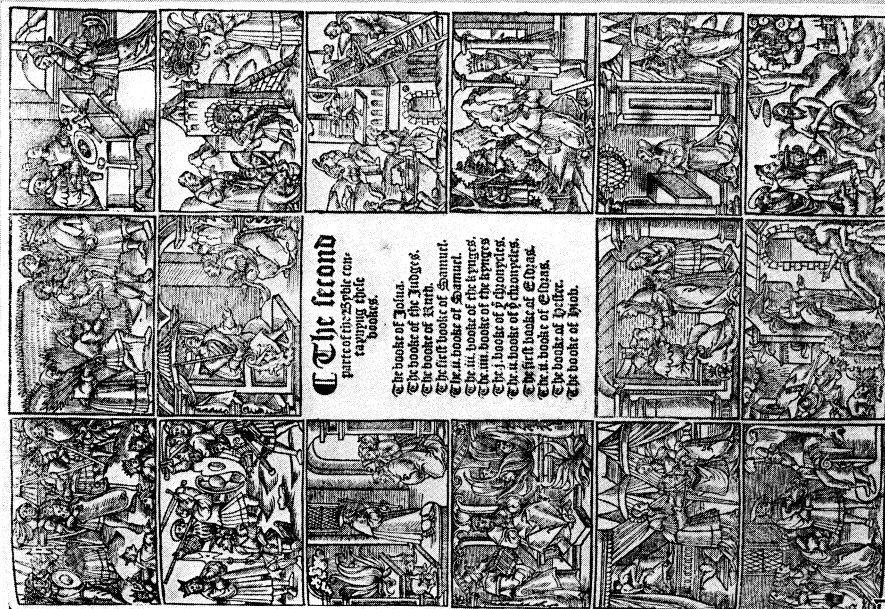 ☾ The second
parte of the Byble con-
taynyng these
bookes.
The booke of Josua.
The booke of the Judges.
The booke of Ruth.
The first booke of Samuel.
The .ii. booke of Samuel.
The .iii. booke of the kynges.
The .iiii. booke of the kynges
The .j. booke of ye chronycles.
The .ii. booke of ye chronycles.
The first booke of Esdras.
The .ii. booke of Esdras.
The booke of Hester.
The booke of Hiob.